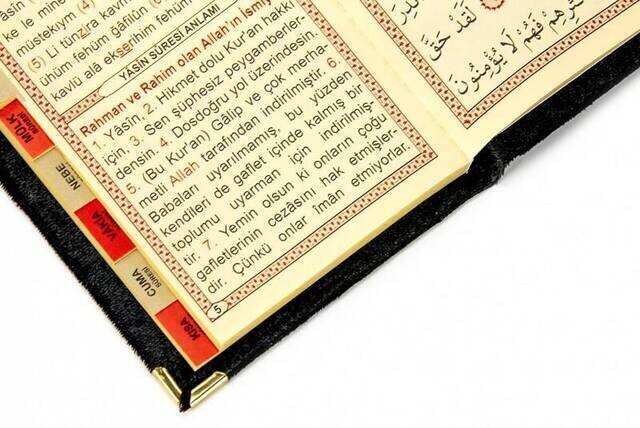 ke le mine
müstekıym (4)
(5) Li tünzira kavmen
ühüm fehüm ğâfilûn (6)
kavlü alâ ekserihim fehüm
YÂSİN SÛRESİ ANLAMI
Rahman ve Rahim olan Allah'ın İsmiy
1. Yâsîn. 2. Hikmet dolu Kur'an hakkı
için, 3. Sen şüphesiz peygamberler-
densin. 4. Dosdoğru yol üzerindesin.
5. (Bu Kur'an) Gâlip ve çok merha-
metli Allah tarafından indirilmiştir. 6.
Babaları uyarılmamış, bu yüzden
kendileri de gaflet içinde kalmış bir
toplumu uyarman için indirilmiş-
tir. 7. Yemin olsun ki onların çoğu
gafletlerinin cezasını hak etmişler-
dir. Çünkü onlar îmân etmiyorlar.
5
لَقَدْ حَقَّ
فَهُمْ لَا يُؤْمِنُونَ
MÜLK
SÛRESİ
NEBE
VÂKIA
SÛRESİ
CUMA
SÛRESİ
KISA